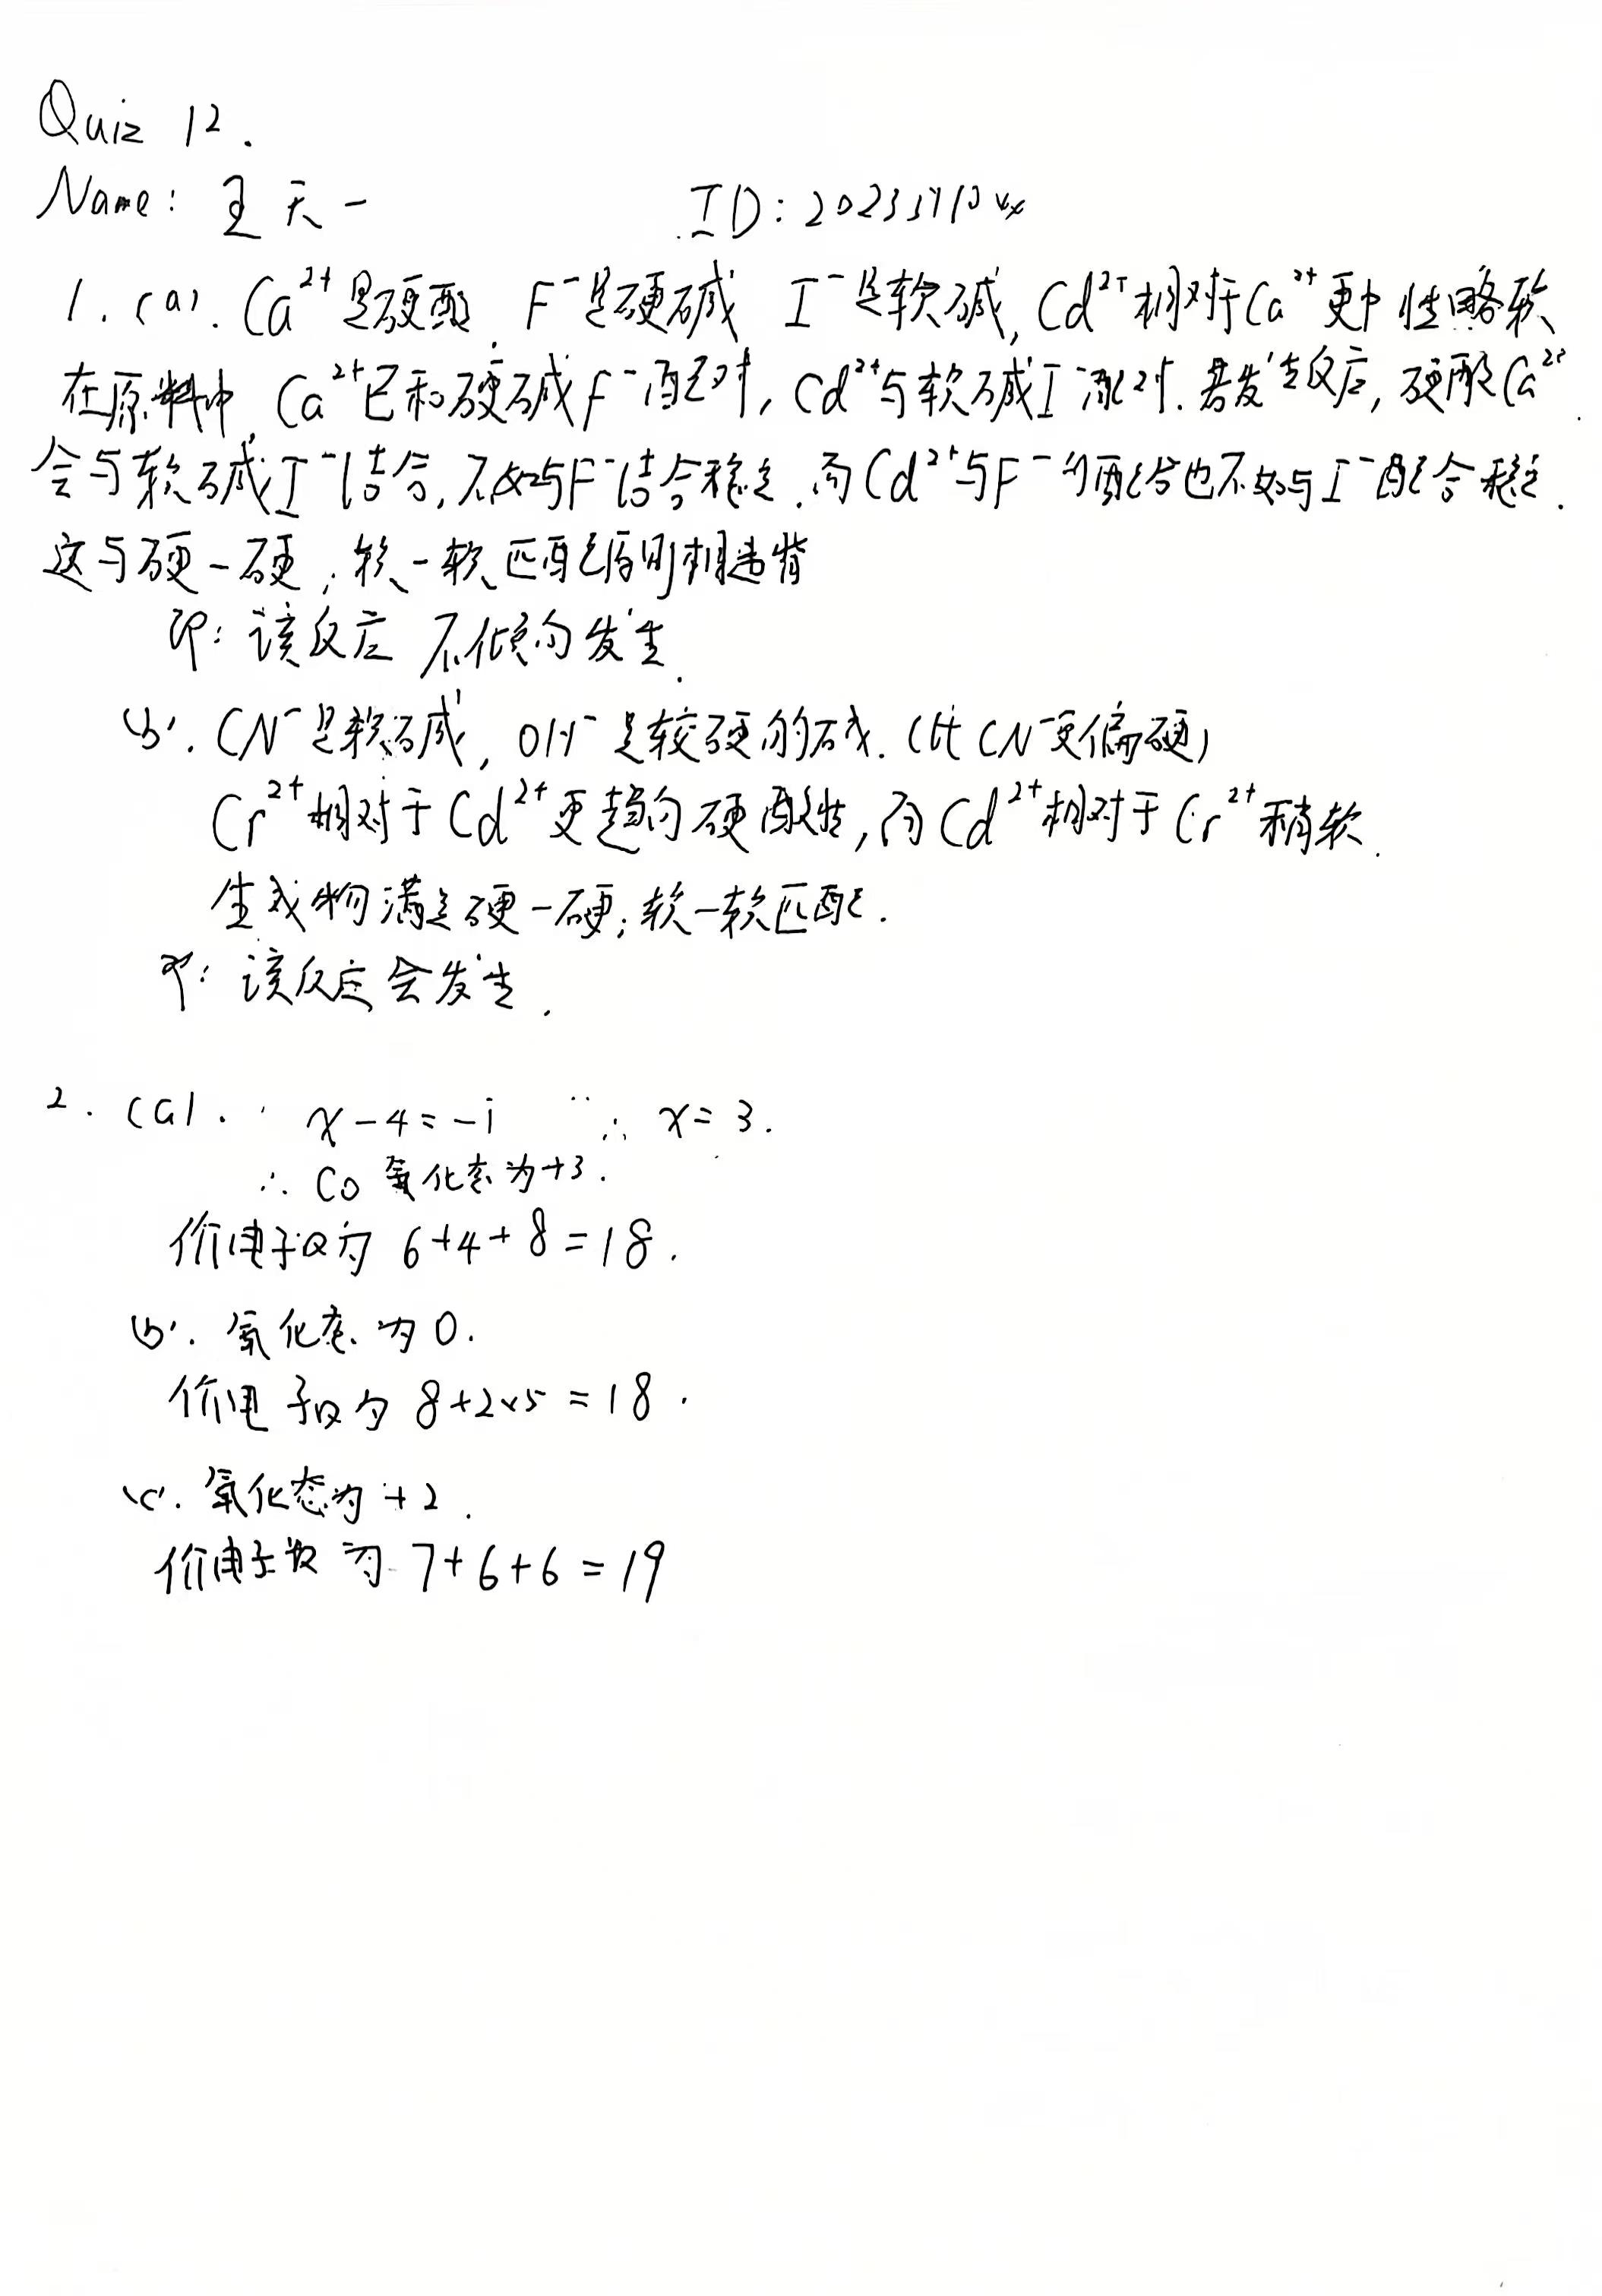 Quiz 12.
Name: 王天一 ID: 2023
1. (a). Ca²⁺是硬酸. F⁻是硬碱 I⁻是软碱, Cd²⁺相对于Ca²⁺更中性略软
在原料中, Ca²⁺已和硬碱F⁻配对, Cd²⁺与软碱I⁻配对. 若发生反应, 硬酸Ca²⁺
会与软碱I⁻结合, 不如与F⁻结合稳定. 而Cd²⁺与F⁻的配合也不如与I⁻配合稳定.
这与硬-硬; 软-软匹配原则相违背
即: 该反应 不倾向发生.
(b). CN⁻是软碱, OH⁻是较硬的碱. (比CN⁻更偏硬)
Cr²⁺相对于Cd²⁺更趋向硬酸性, 而Cd²⁺相对于Cr²⁺稍软.
生成物满足硬-硬; 软-软匹配.
即: 该反应会发生.
2. (a). ∵ x-4=-1 ∴ x=3.
∴ Co 氧化态为+3.
价电子数为 6+4+8=18.
(b). 氧化态为0.
价电子数为 8+2×5=18.
(c). 氧化态为+2.
价电子数为 7+6+6=19